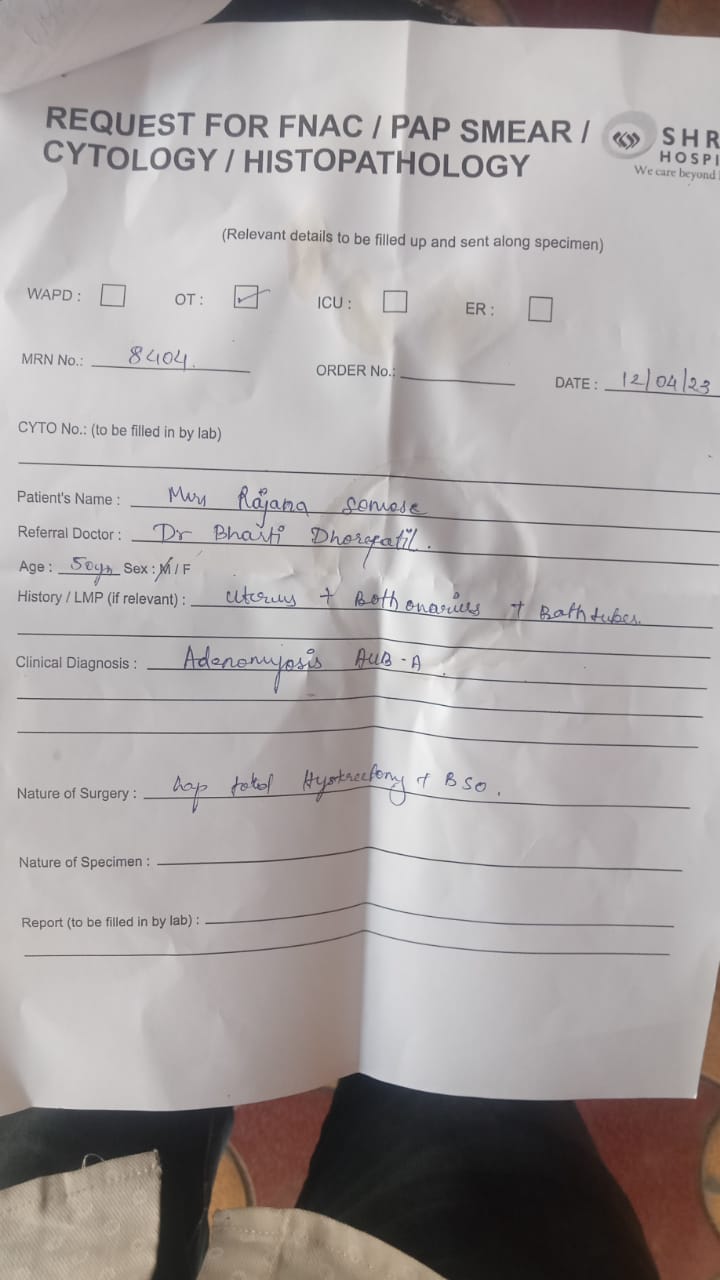 REQUEST FOR FNAC / PAP SMEAR /
CYTOLOGY / HISTOPATHOLOGY
SHR
HOSPI
We care beyond
(Relevant details to be filled up and sent along specimen)
WAPD : OT : ICU : ER :
MRN No.: 8404.
ORDER No.:
DATE : 12/04/23
CYTO No.: (to be filled in by lab)
Patient's Name : Mrs Rajana
Referral Doctor : Dr Bharti Dhorepatil.
Age : 50yr Sex : M / F
History / LMP (if relevant) : Uterus + Both ovaries + Both tubes.
Clinical Diagnosis : Adenomyosis AUB - A
Nature of Surgery : Lap total Hysterectomy + BSO.
Nature of Specimen :
Report (to be filled in by lab) :